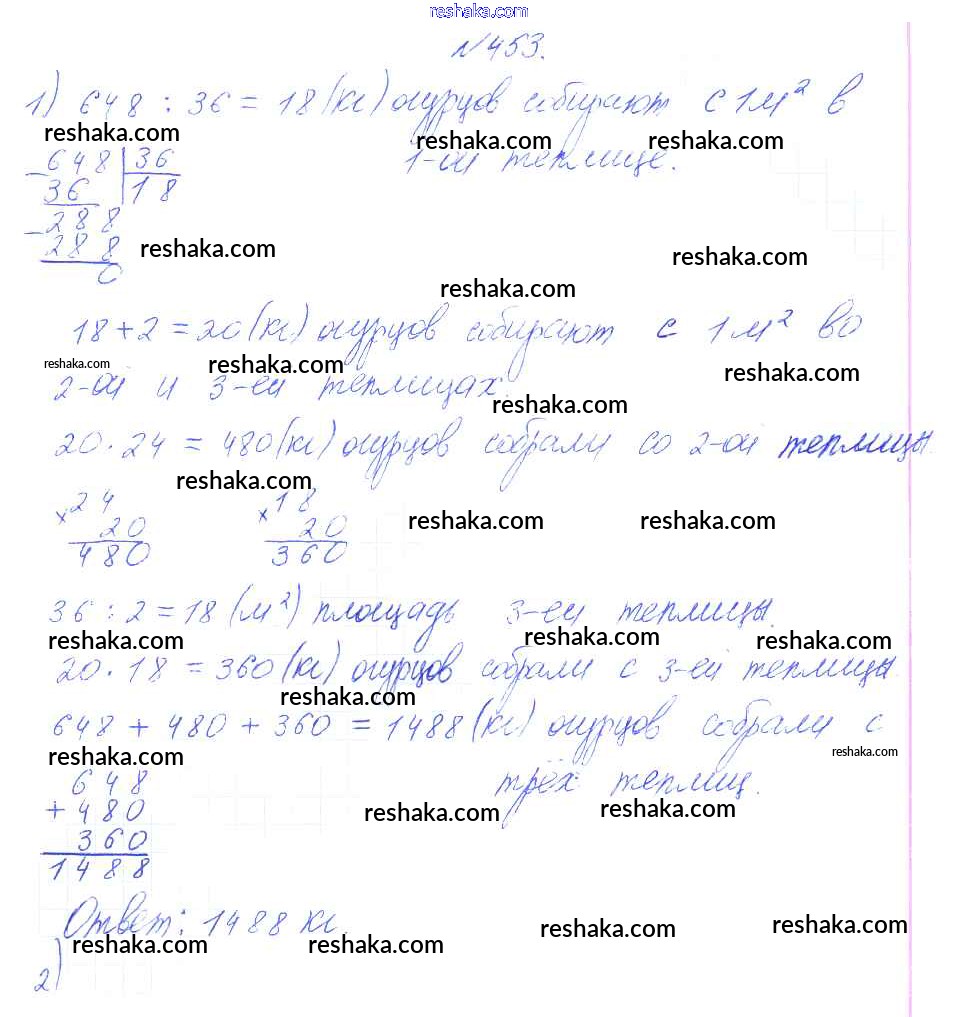 reshaka.com
№453.
1) 648 : 36 = 18 (кг) огурцов собирают с 1 м² в
reshaka.com reshaka.com reshaka.com
1-ой теплице.
- 648 | 36
36 | 18
- 288
288
0
reshaka.com reshaka.com
reshaka.com
18 + 2 = 20 (кг) огурцов собирают с 1 м² во
reshaka.com reshaka.com reshaka.com
2-ой и 3-ей теплицах.
reshaka.com
20 · 24 = 480 (кг) огурцов собрали со 2-ой теплицы.
reshaka.com
× 24 × 18
20 20
480 360
reshaka.com reshaka.com
36 : 2 = 18 (м²) площадь 3-ей теплицы.
reshaka.com reshaka.com reshaka.com
20 · 18 = 360 (кг) огурцов собрали с 3-ей теплицы.
reshaka.com
648 + 480 + 360 = 1488 (кг) огурцов собрали с
reshaka.com reshaka.com
трёх теплиц.
648
+ 480
360
1488
reshaka.com reshaka.com
Ответ: 1488 кг.
reshaka.com reshaka.com reshaka.com reshaka.com
2)